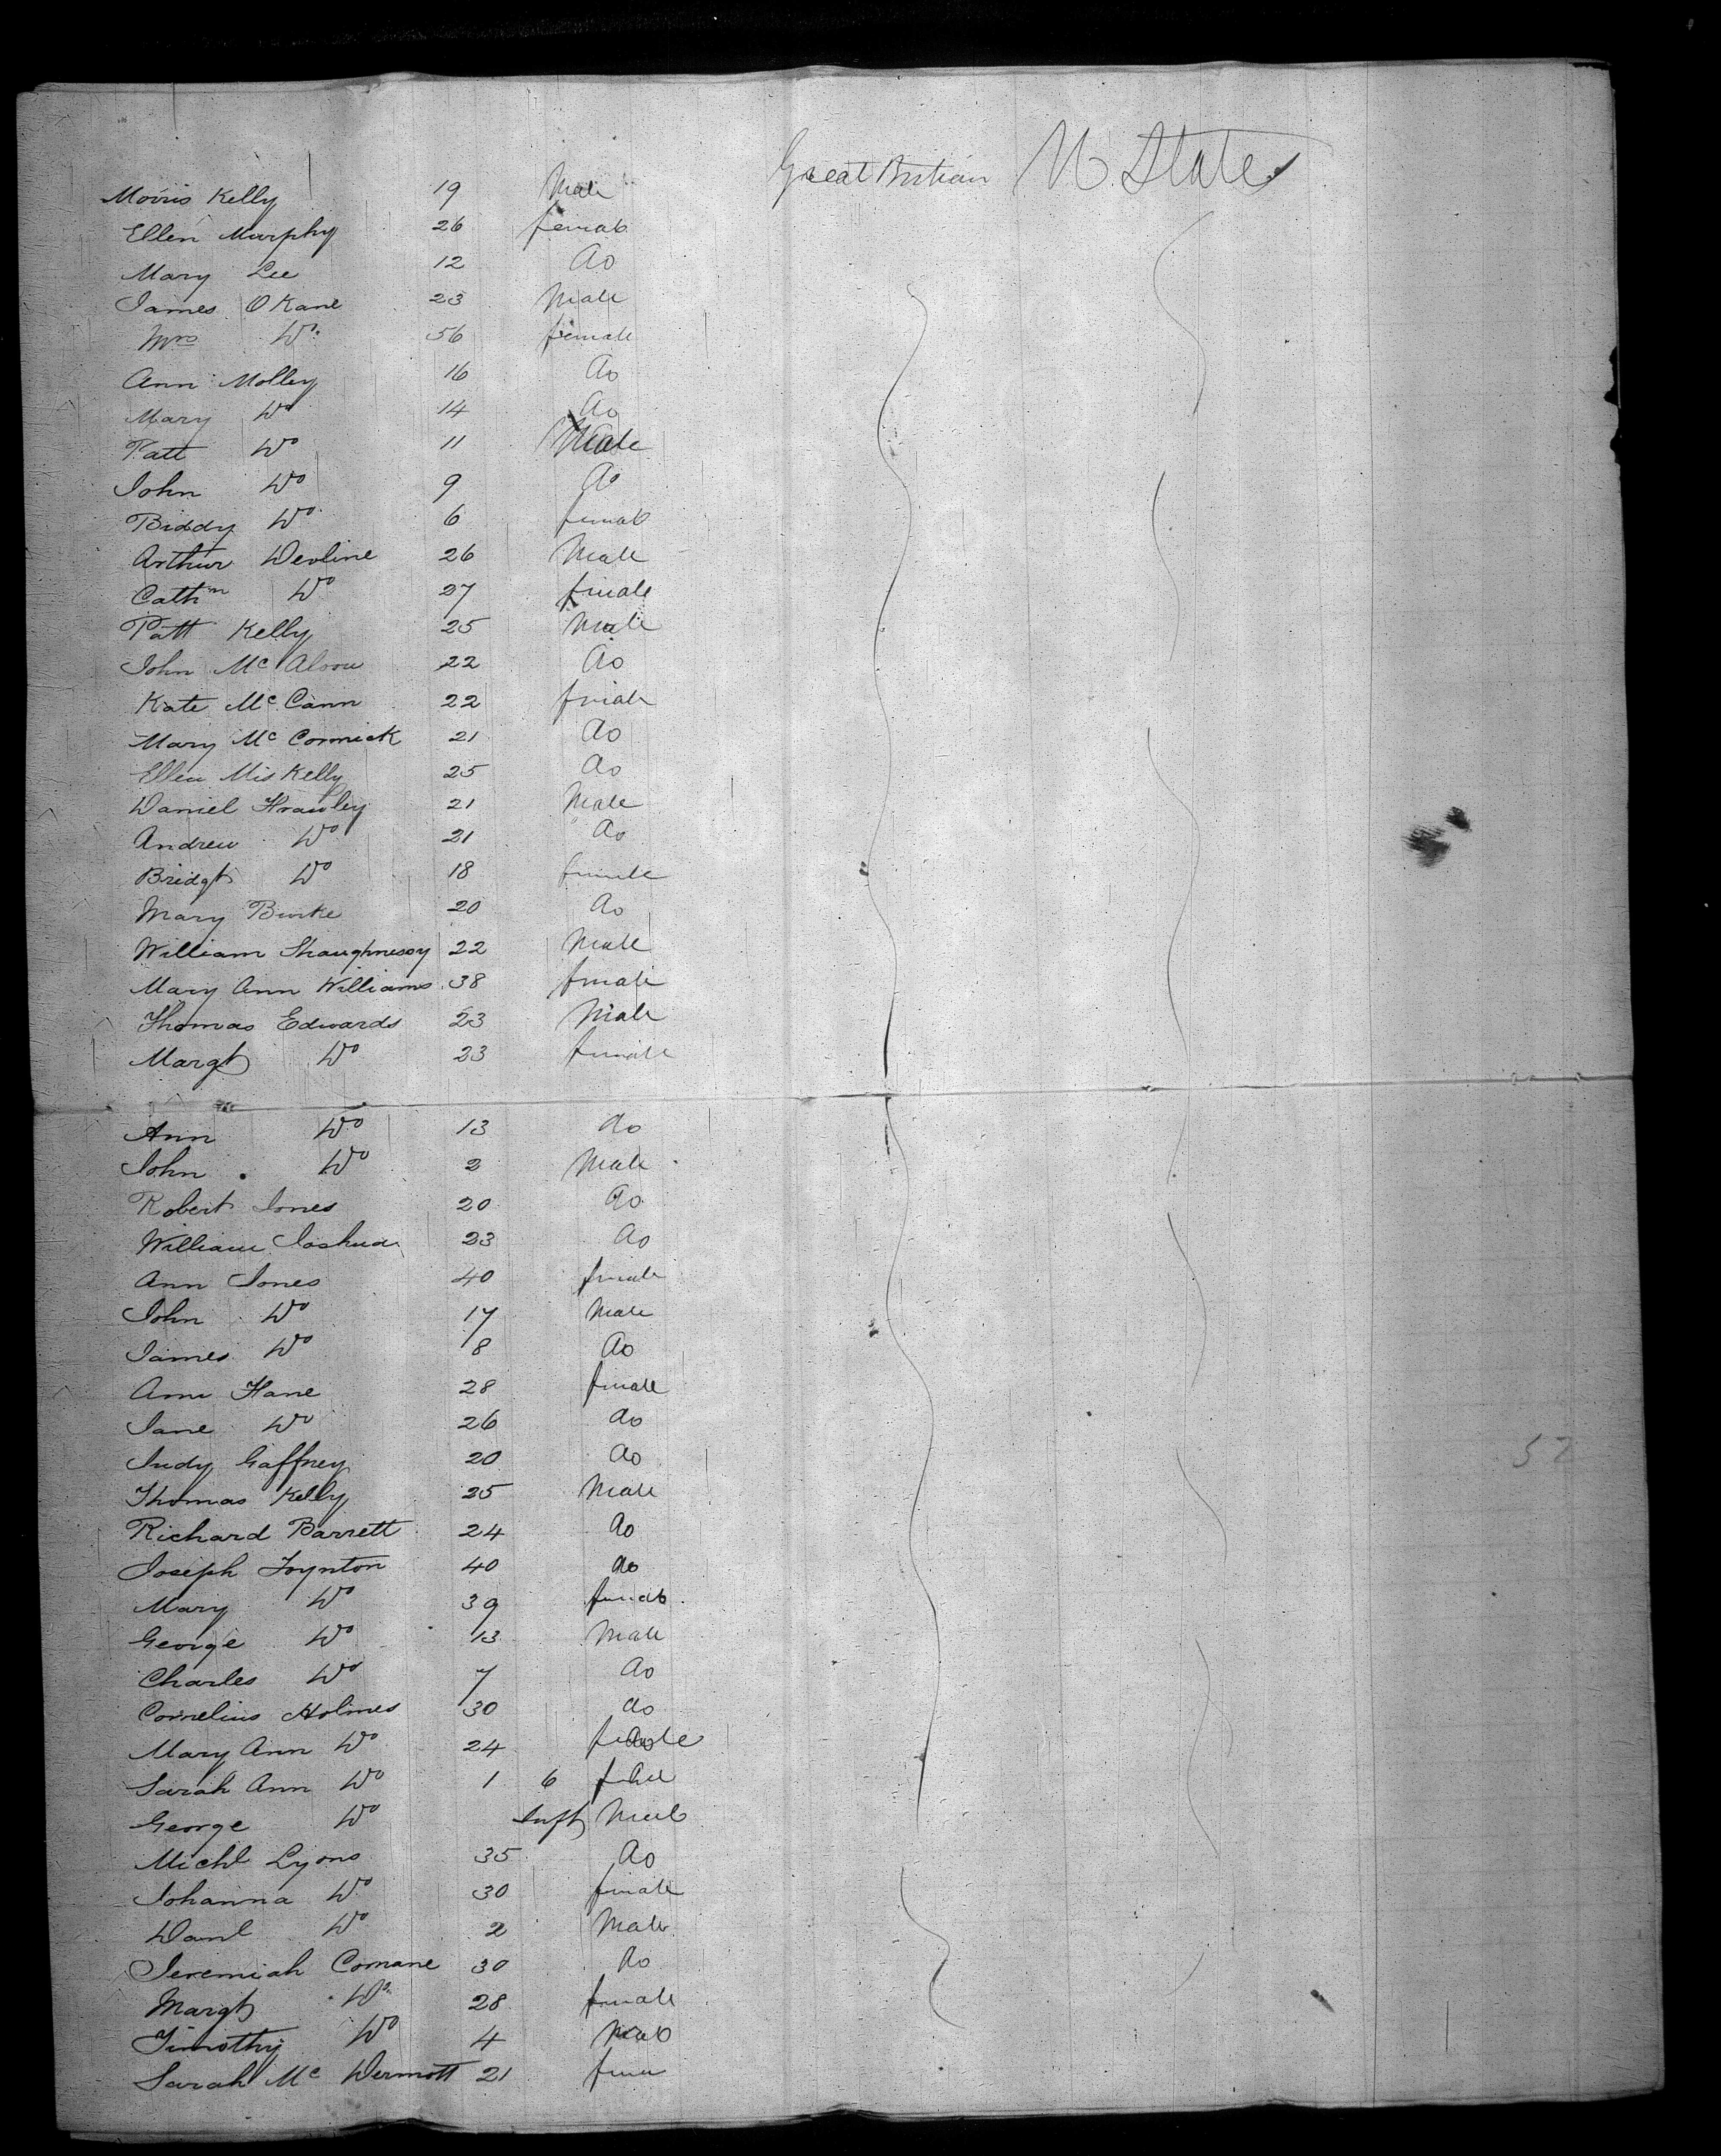 Great Britian U. States
Morris Kelly 19 Male
Ellen Murphy 26 female
Mary Lee 12 do
James O Kane 23 Male
Mrs Do 56 female
Ann Molley 16 do
Mary Do 14 do
Patt Do 11 Male
John Do 9 do
Biddy Do 6 female
Arthur Devline 26 Male
Cathn Do 27 female
Patt Kelly 25 Male
John Mc 22 do
Kate Mc Cann 22 female
Mary Mc Cormick 21 do
Ellen Mis Kelly 25 do
Daniel 21 Male
Andrew Do 21 do
Bridgt Do 18 female
Mary Burke 20 do
William Shaughnessy 22 Male
Mary Ann Williams 38 female
Thomas Edwards 23 Male
Margt Do 23 female
Ann Do 13 do
John Do 2 Male
Robert Jones 20 do
William Joshua 23 do
Ann Jones 40 female
John Do 17 Male
James Do 8 do
Ann Hane 28 female
Jane Do 26 do
Judy Gaffney 20 do
Thomas Kelly 25 Male
Richard Barrett 24 do
Joseph Foynton 40 do
Mary Do 39 female
George Do 13 Male
Charles Do 7 do
Cornelius Holmes 30 do
Mary Ann Do 24 female
Sarah Ann Do 1 6
George Do Inft Male
Michl Lyons 35 do
Johanna Do 30 female
Danl Do 2 Male
Jeremiah Comane 30 do
Margt Do 28 female
Timothy Do 4 Male
Sarah Mc Dermott 21
57